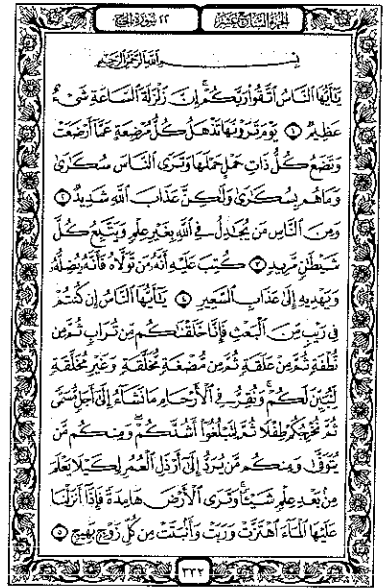 الجزء السابع عشر ٢٢ سورة الحج
بِسْمِ اللَّهِ الرَّحْمَٰنِ الرَّحِيمِ
يَٰٓأَيُّهَا ٱلنَّاسُ ٱتَّقُوا۟ رَبَّكُمْ ۚ إِنَّ زَلْزَلَةَ ٱلسَّاعَةِ شَىْءٌ
عَظِيمٌ ١ يَوْمَ تَرَوْنَهَا تَذْهَلُ كُلُّ مُرْضِعَةٍ عَمَّآ أَرْضَعَتْ
وَتَضَعُ كُلُّ ذَاتِ حَمْلٍ حَمْلَهَا وَتَرَى ٱلنَّاسَ سُكَٰرَىٰ
وَمَا هُم بِسُكَٰرَىٰ وَلَٰكِنَّ عَذَابَ ٱللَّهِ شَدِيدٌ ٢
وَمِنَ ٱلنَّاسِ مَن يُجَٰدِلُ فِى ٱللَّهِ بِغَيْرِ عِلْمٍ وَيَتَّبِعُ كُلَّ
شَيْطَٰنٍ مَّرِيدٍ ٣ كُتِبَ عَلَيْهِ أَنَّهُۥ مَن تَوَلَّاهُ فَأَنَّهُۥ يُضِلُّهُۥ
وَيَهْدِيهِ إِلَىٰ عَذَابِ ٱلسَّعِيرِ ٤ يَٰٓأَيُّهَا ٱلنَّاسُ إِن كُنتُمْ
فِى رَيْبٍ مِّنَ ٱلْبَعْثِ فَإِنَّا خَلَقْنَٰكُم مِّن تُرَابٍ ثُمَّ مِن
نُّطْفَةٍ ثُمَّ مِنْ عَلَقَةٍ ثُمَّ مِن مُّضْغَةٍ مُّخَلَّقَةٍ وَغَيْرِ مُخَلَّقَةٍ
لِّنُبَيِّنَ لَكُمْ ۚ وَنُقِرُّ فِى ٱلْأَرْحَامِ مَا نَشَآءُ إِلَىٰٓ أَجَلٍ مُّسَمًّى
ثُمَّ نُخْرِجُكُمْ طِفْلًا ثُمَّ لِتَبْلُغُوٓا۟ أَشُدَّكُمْ ۖ وَمِنكُم مَّن
يُتَوَفَّىٰ وَمِنكُم مَّن يُرَدُّ إِلَىٰٓ أَرْذَلِ ٱلْعُمُرِ لِكَيْلَا يَعْلَمَ
مِنۢ بَعْدِ عِلْمٍ شَيْـًٔا ۚ وَتَرَى ٱلْأَرْضَ هَامِدَةً فَإِذَآ أَنزَلْنَا
عَلَيْهَا ٱلْمَآءَ ٱهْتَزَّتْ وَرَبَتْ وَأَنۢبَتَتْ مِن كُلِّ زَوْجٍۭ بَهِيجٍ ٥
٣٣٢